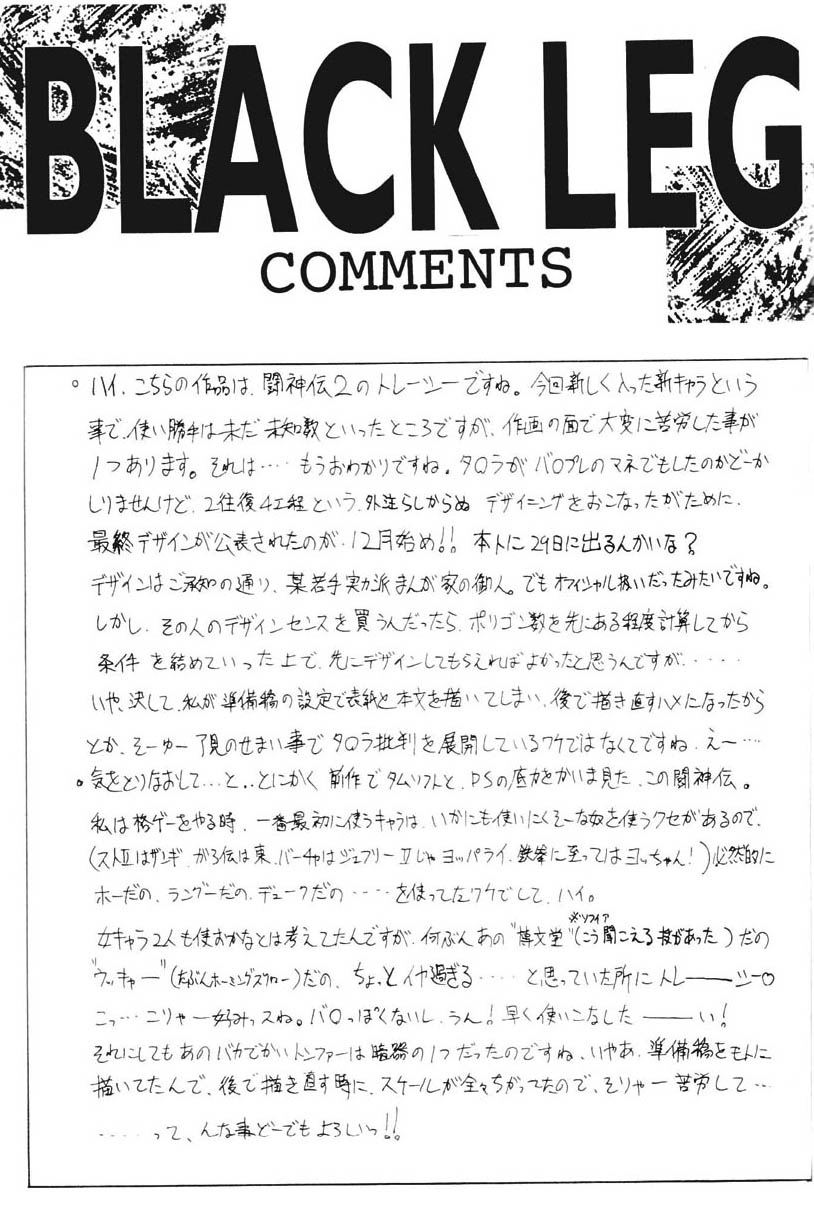 BLACK LEG
COMMENTS
。ハイ、こちらの作品は、闘神伝2のトレーシーですね。今回新しく入った新キャラという
事で、使い勝手は未だ未知数といったところですが、作画の面で大変に苦労した事が
1つあります。それは‥‥もうおわかりですね。タロラがバロプレのマネでもしたのかどーか
しりませんけど、2往復4工程という、外注らしからぬ デザイニングをおこなったがために、
最終デザインが公表されたのが、12月始め!! 本トに29日に出るんかいな?
デザインはご承知の通り、某若手実力派まんが家の御人。でもオフィシャル扱いだったみたいですね。
しかし、その人のデザインセンスを買うんだったら、ポリゴン数を先にある程度計算してから
条件を結めていった上で、先にデザインしてもらえればよかったと思うんですが、‥‥‥
いや、決して、私が準備稿の設定で表紙と本文を描いてしまい、後で描き直すハメになったから
とか、そーゆー了見のせまい事でタロラ批判を展開しているワケではなくてですね、え〜‥‥
。気をとりなおして‥‥と‥とにかく 前作でタムソフトと、PSの底力をかいま見た、この闘神伝。
私は格ゲーをやる時、一番最初に使うキャラは、いかにも使いにくそーな奴を使うクセがあるので、
(ストⅡはザンギ、がろ伝は東、バーチャはジェフリーⅡじゃヨッパライ、鉄拳に至ってはヨッちゃん!)必然的に
ホーだの、ラングーだの、デュークだの‥‥‥を使ってたワケでして、ハイ。
女キャラ2人も使おかなとは考えてたんですが、何ぶんあの"博文堂"(こう聞こえる技があった)だの
※ソフィア
"ウッキャー"(たぶんホーミングスクロー)だの、ちょっとイヤ過ぎる‥‥‥と思っていた所にトレ――シー○
こっ‥‥こりゃー好みっスね。バロっぽくないし、うん! 早く使いこなした――い!
それにしてもあのバカでかいトンファーは暗器の1つだったのですね、いやあ、準備稿をモトに
描いてたんで、後で描き直す時に、スケールが全々ちがってたので、そりゃー苦労して‥‥
‥‥‥って、んな事どーでもよろしいっ!!